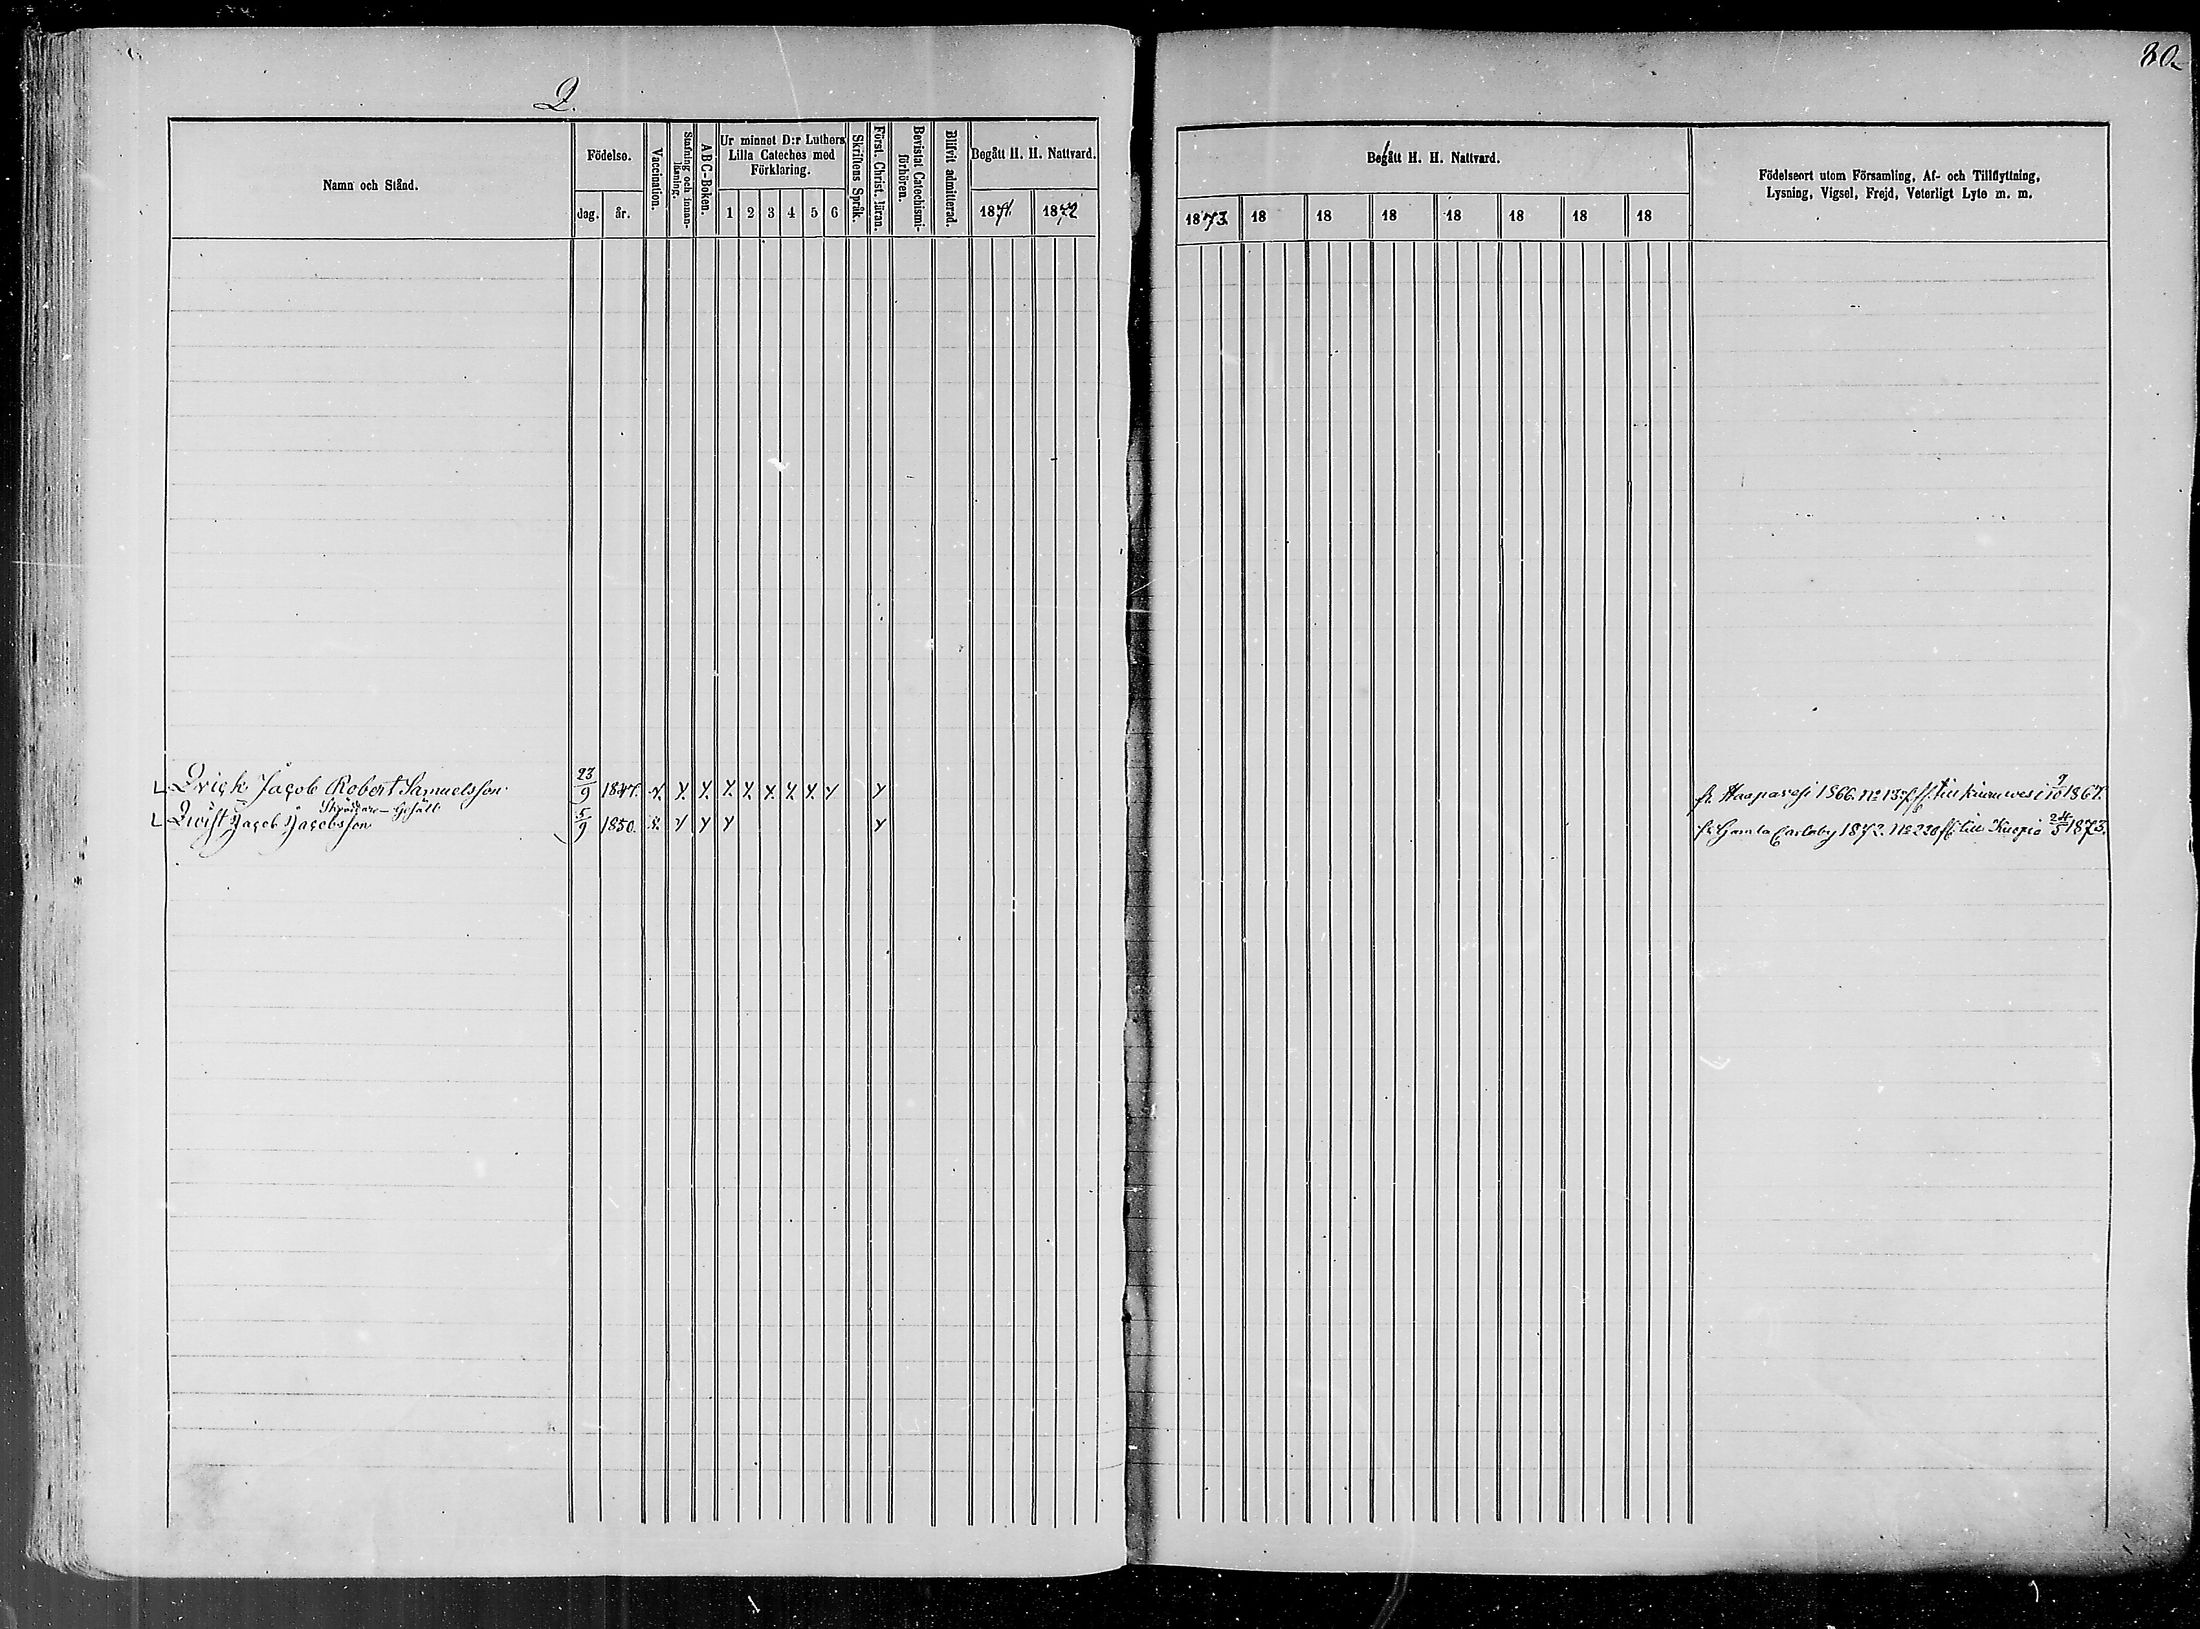 Q.
80.
Namn och Stånd.
Födelse.
dag. år.
Vaccination.
Stafning och innan-
läsning.
ABC-Boken.
Ur minnet D:r Luthers
Lilla Cateches med
Förklaring.
1 2 3 4 5 6
Skriftens Språk.
Först. Christ. läran.
Bevistat Catechismi-
förhören.
Blifvit admitterad.
Begått H. H. Nattvard.
1871. 1872
Begått H. H. Nattvard.
1873. 18 18 18 18 18 18 18
Födelseort utom Församling, Af- och Tillflyttning,
Lysning, Vigsel, Frejd, Veterligt Lyte m. m.
Qvick Jacob Robert Samuelsson. 23/9 1847. fr. Haapavesi 1866. No 137. fl. till Kiuruwesi 9/10 1867.
Skräddare-Gesäll
Qvist Jacob Jacobsson 5/9 1850. fr. Gamla Carleby 1872. No 230 fl. till Kuopio 24/5 1873.